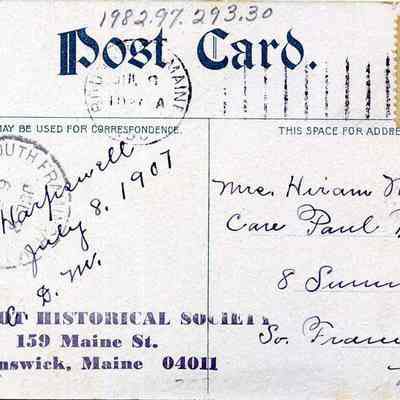 1982.97.293.30
Post Card.
MAINE
MAY BE USED FOR CORRESPONDENCE.
THIS SPACE FOR ADDRE
SOUTH FRA
Harpswell
July 8, 1907
D. M.
Mrs. Hiram
Care Paul
8 Summ
So. Fram
OT HISTORICAL SOCIETY
159 Maine St.
nswick, Maine 04011